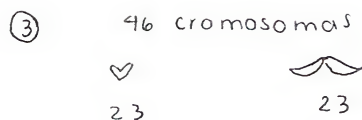 ③ 46 cromosomas
23 23